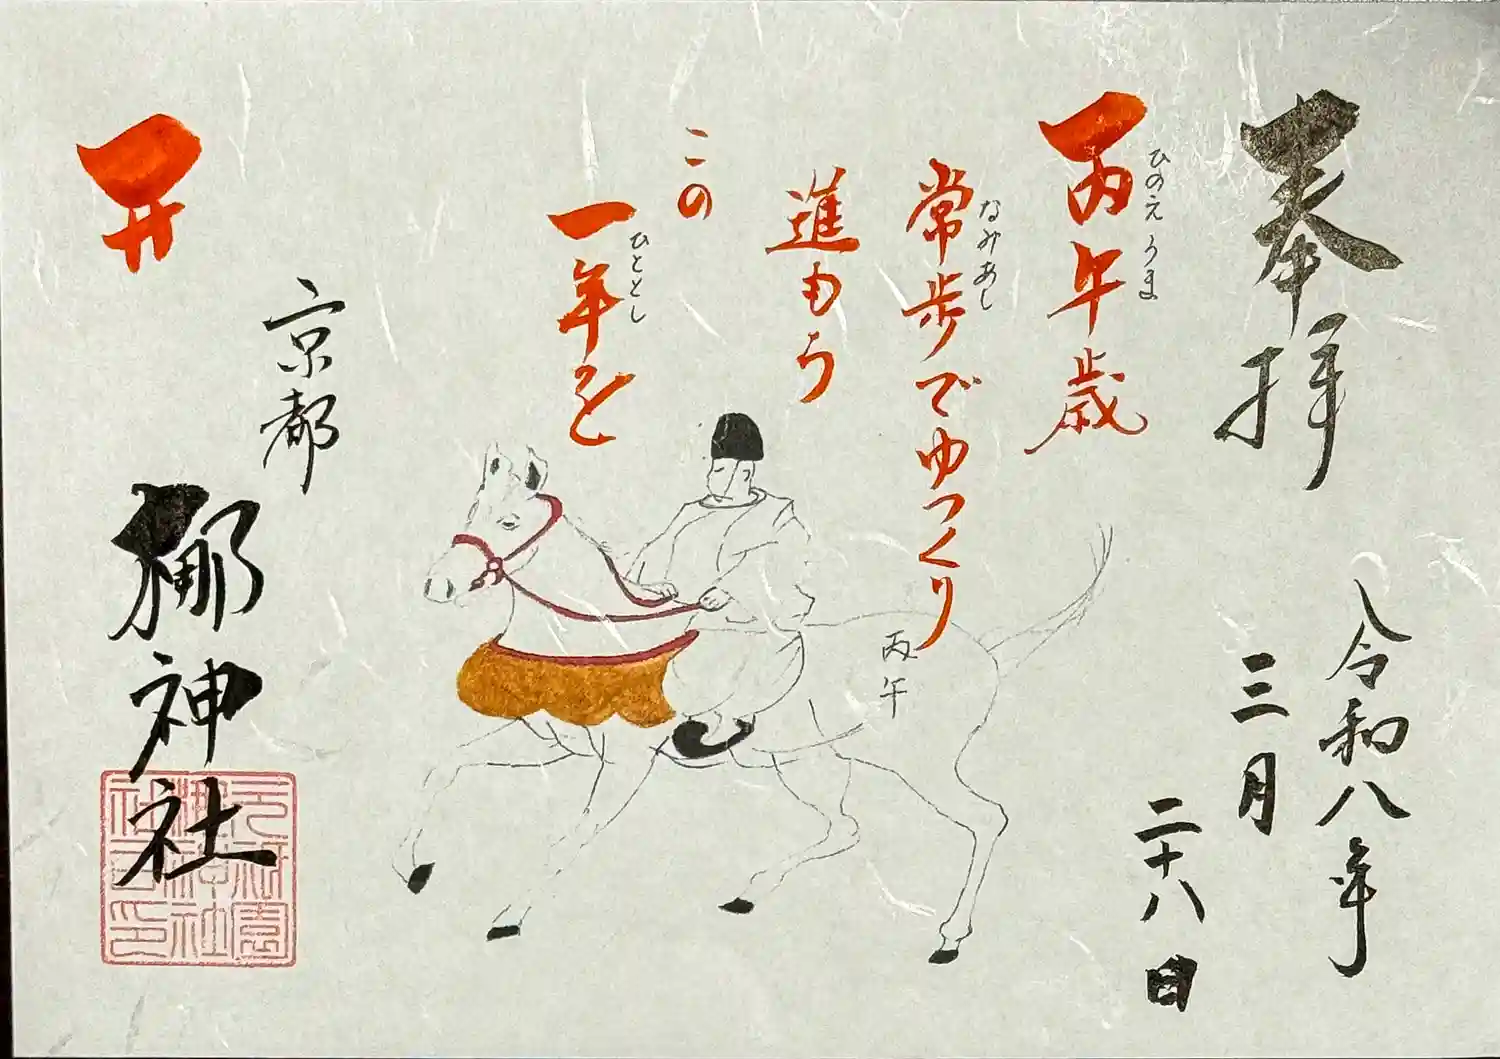 奉拝
令和八年
三月
二十八日
丙午歳
ひのえうま
常歩でゆっくり
なみあし
進もう
この
一年を
ひととし
丙午
开
京都
梛神社
元祇園
梛神社